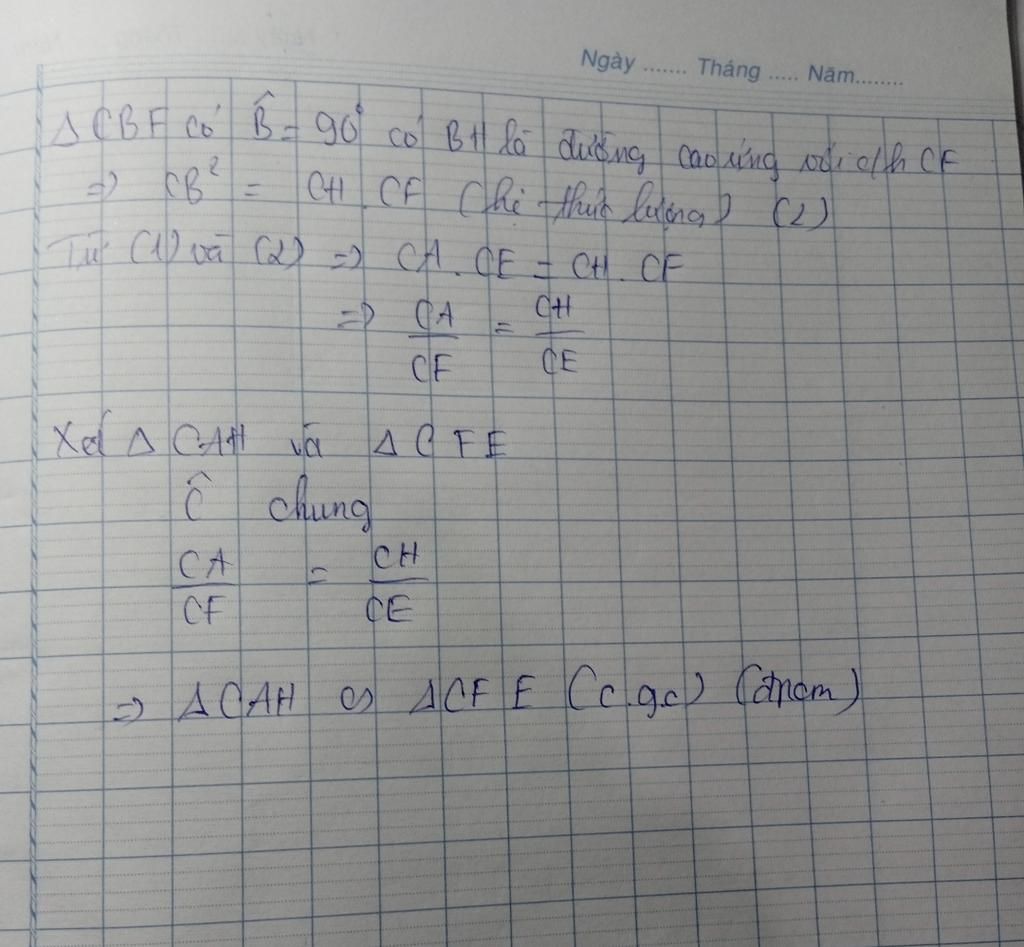 Ngày ....... Tháng ..... Năm........
Δ CBF có B̂ = 90° có BH là đường cao ứng với c/h CF
=> CB² = CH . CF (hệ thức lượng) (2)
Từ (1) và (2) => CA . CE = CH . CF
=> CA/CF = CH/CE
Xét Δ CAH và Δ CFE
Ĉ chung
CA/CF = CH/CE
=> Δ CAH ∽ Δ CFE (c.g.c) (đpcm)